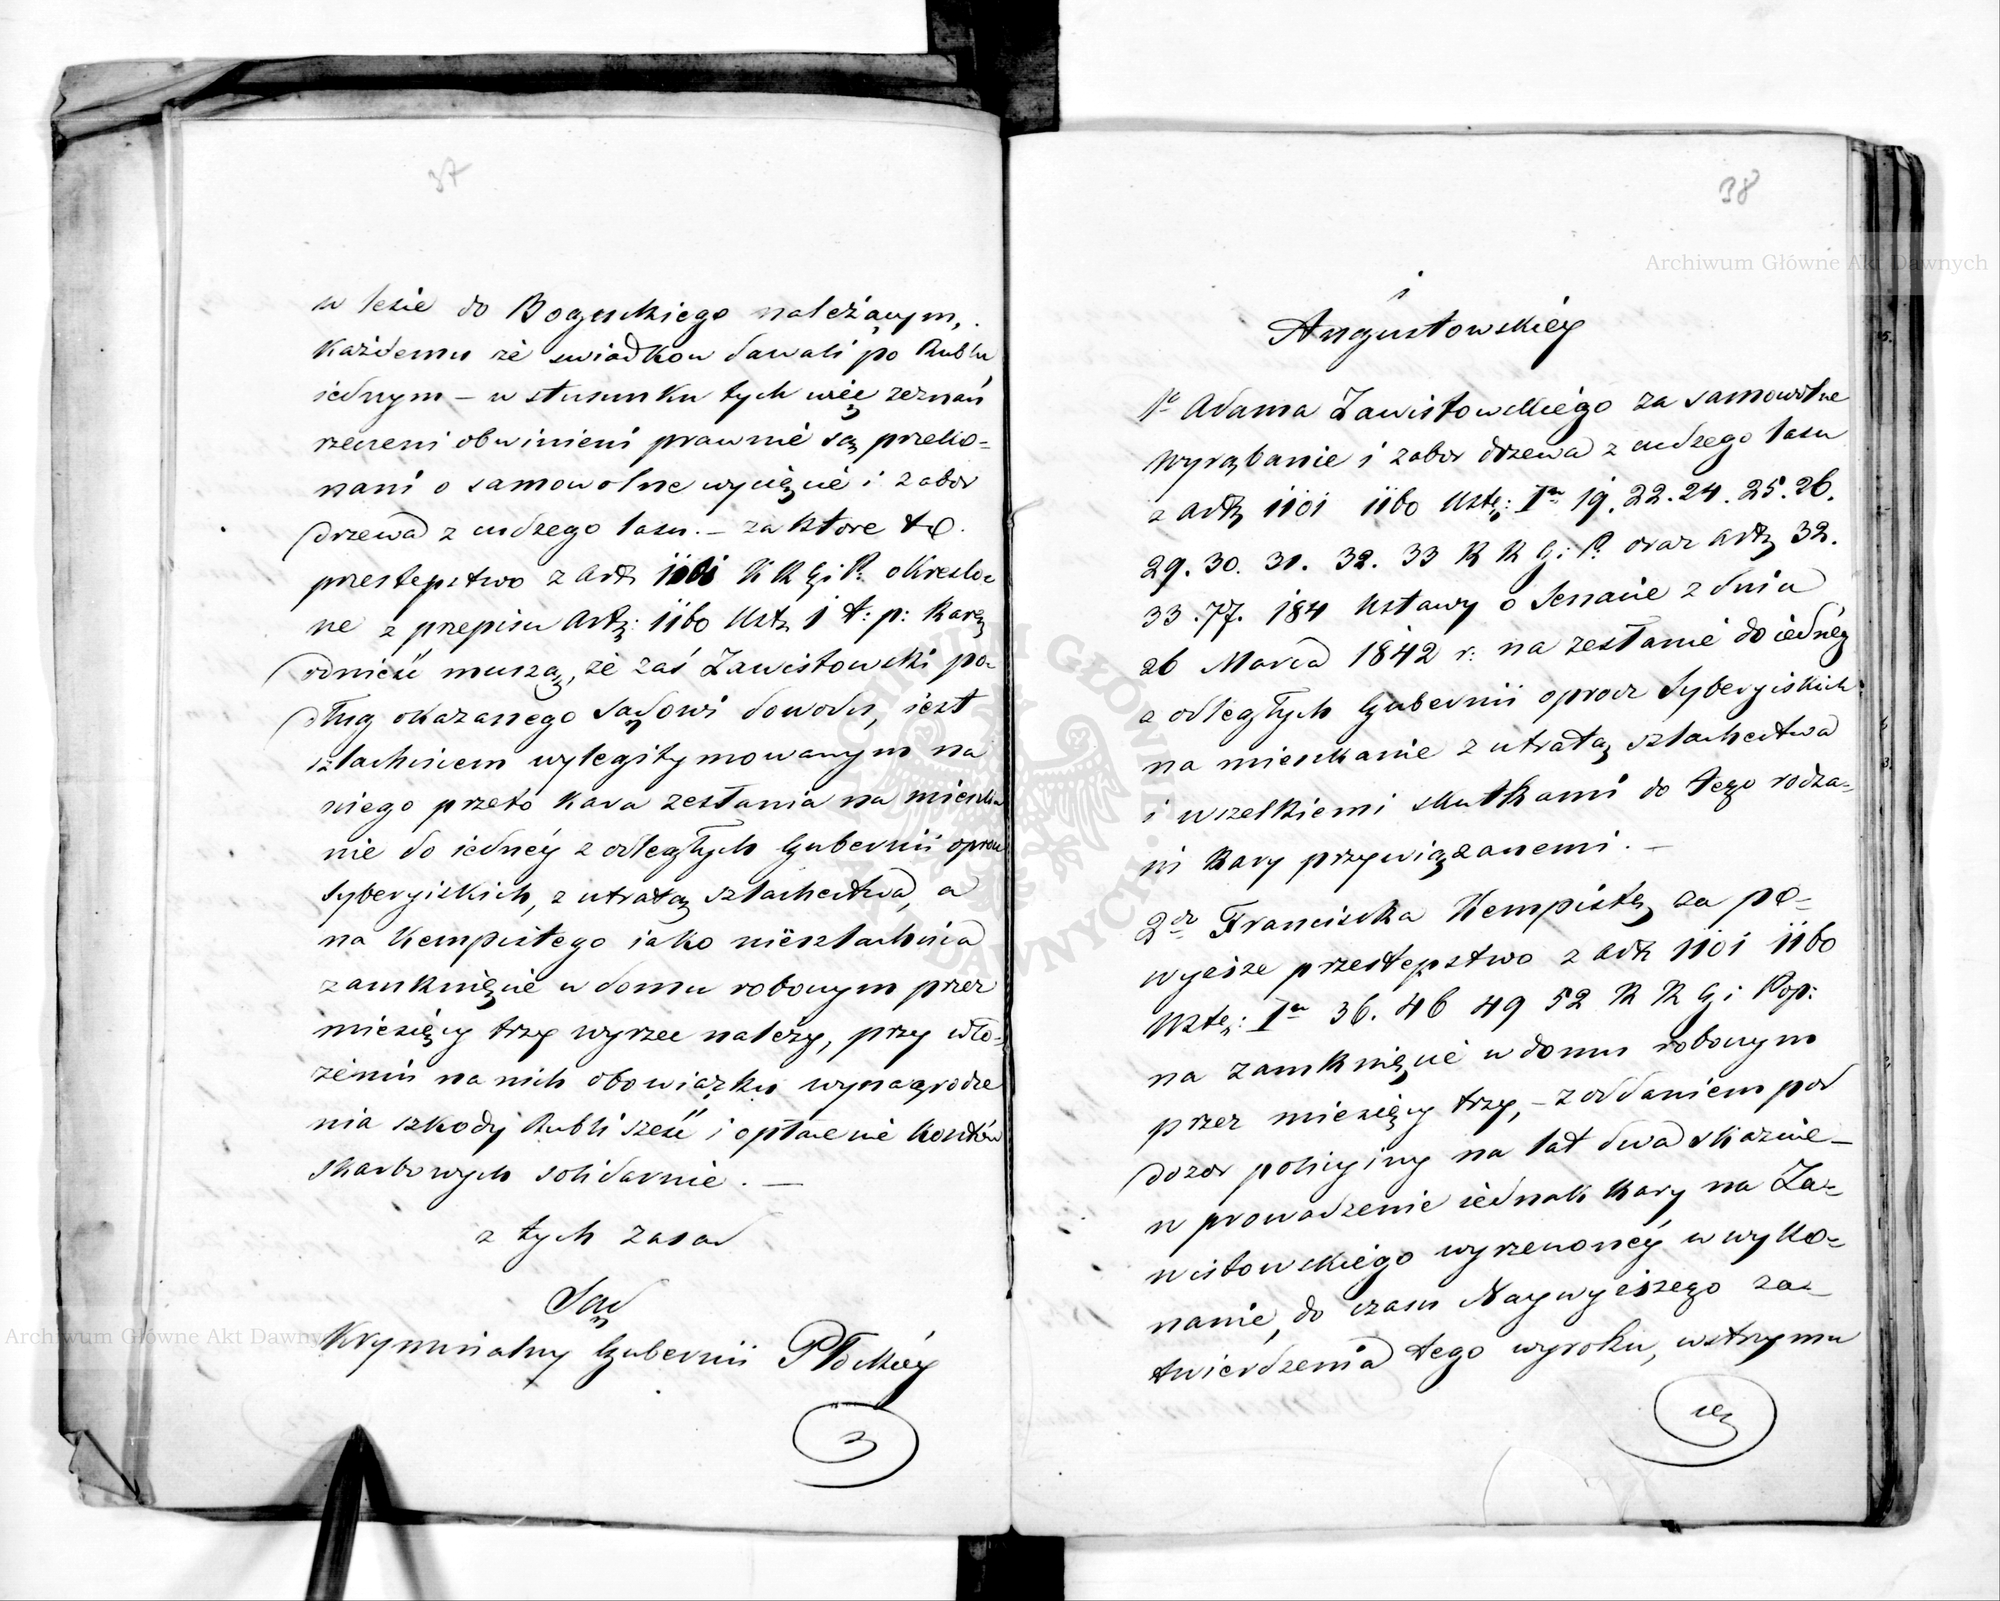 37
w lesie do Boguckiego należącym,
każdemu ze swiadkow dawali po Rublu
iednym – w stosunku tych więc zeznań
rzeczeni obwinieni prawnie są przeko=
nani o samowolne wycięcie i zabor
drzewa z cudzego lasu. – za ktore to
przestępstwo z art. 1101 K K G i P. okreslo=
ne z przepisu Art: 1160 Ustę 1 t: p: karę
odnieść muszą, że zaś Zawistowski po=
dług okazanego Sądowi dowodu, iest
szlachcicem wylegitymowanym na
niego przeto kara zesłania na mieszka
nie do iednéy z odległych Gubernii oprocz
Syberyiskich, z utratą szlachectwa, a
na Kempistego iako nieszlachcica
zamknięcie w domu roboczym przez
miesięcy trzy wyrzec należy, przy wło=
żeniu na nich obowiązku wynagrodze
nia szkody Rubli sześć i opłacenie kosztów
skarbowych solidarnie. –
z tych zasad
Sąd
Kryminalny Gubernii Płockiéy
i
38
i
Augustowskiéy
1o Adama Zawistowskiégo za samowolne
wyrąbanie i zabor drzewa z cudzego lasu
z artę 1101 1160 Ustę: Im 19. 22. 24. 25. 26.
29. 30. 31. 32. 33 K K G i P. oraz artę 32.
33. 77. 184 Ustawy o Senacie z dnia
26 Marca 1842 r: na zesłanie do iednéy
z odległych Gubernii oprocz Syberyiskich
na mieszkanie z utratą szlachectwa
i wszelkiemi skutkami do tego rodza=
iu kary przywiązanemi. –
2do Franciszka Kempistę za po=
wyższe przestępstwo z art 1101 1160
Ustę: Im 36. 46 49 52 K K G i Pop:
na zamknięcie w domu roboczym
przez miesięcy trzy, – z oddaniem pod
dozor policyiny na lat dwa skazuie –
w prowadzenie iednak kary na Za=
wistowskiégo wyrzeczonéy w wyko=
nanie, do czasu Naywyższego za=
twierdzenia tego wyroku, wstrzymu
ię
Archiwum Główne Akt Dawnych
Archiwum Główne Akt Dawnych
ARCHIWUM GŁÓWNE AKT DAWNYCH